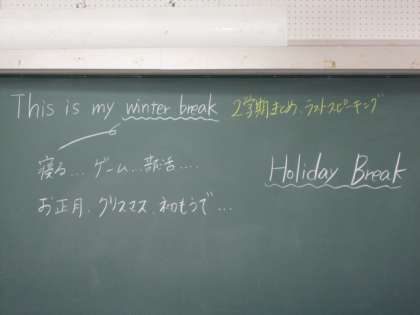 This is my winter break 2学期まとめ、ラストスピーキング
寝る... ゲーム... 部活....
Holiday Break
お正月、クリスマス、初もうで...